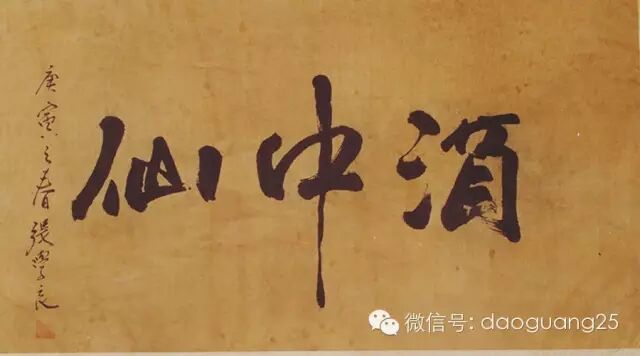 酒中仙
庚寅之春 張學良
微信号: daoguang25